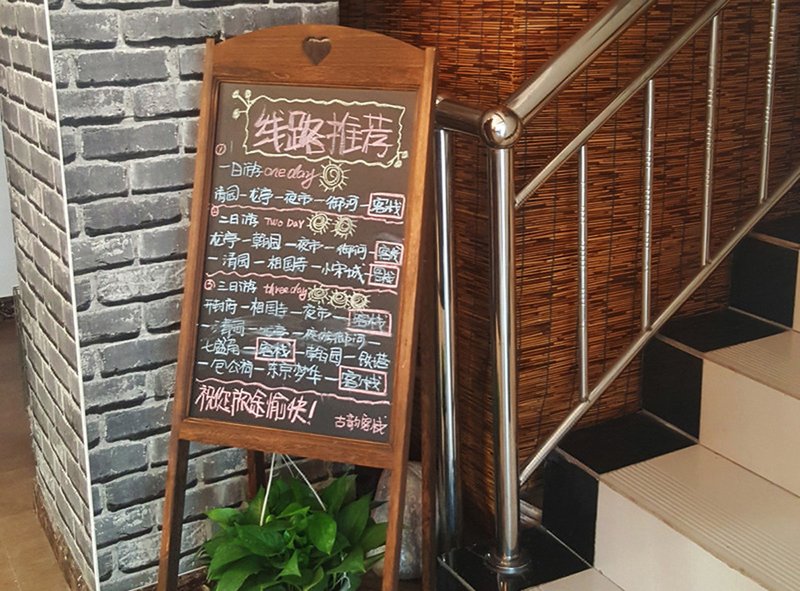 线路推荐
① 一日游 one day
清园—龙亭—夜市—御河—客栈
二日游 Two Day
龙亭—翰园—夜市—御河—客栈
—清园—相国寺—小宋城—客栈
③ 三日游 three day
开封府—相国寺—夜市—客栈
—清园—御河—
七盛角—客栈—翰园—铁塔
—包公祠—东京梦华—客栈
祝您旅途愉快!
古韵客栈